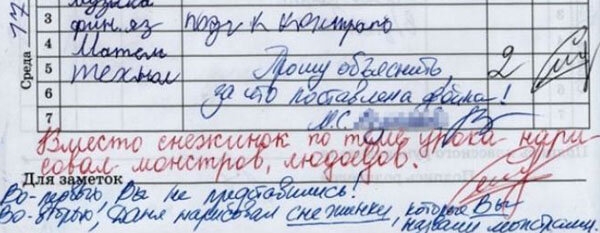 17
3 фин. яз подг к контрало
4 Матем
Среда
5 технол Прошу объяснить, 2
6 за что поставлена двойка!
7 М.С.
Вместо снежинок по теме урока нари-
совал монстров, людоедов.
Для заметок
Во-первых, Вы не представились!
Во-вторых, Даня нарисовал снежинки, которые Вы
назвали монстрами.